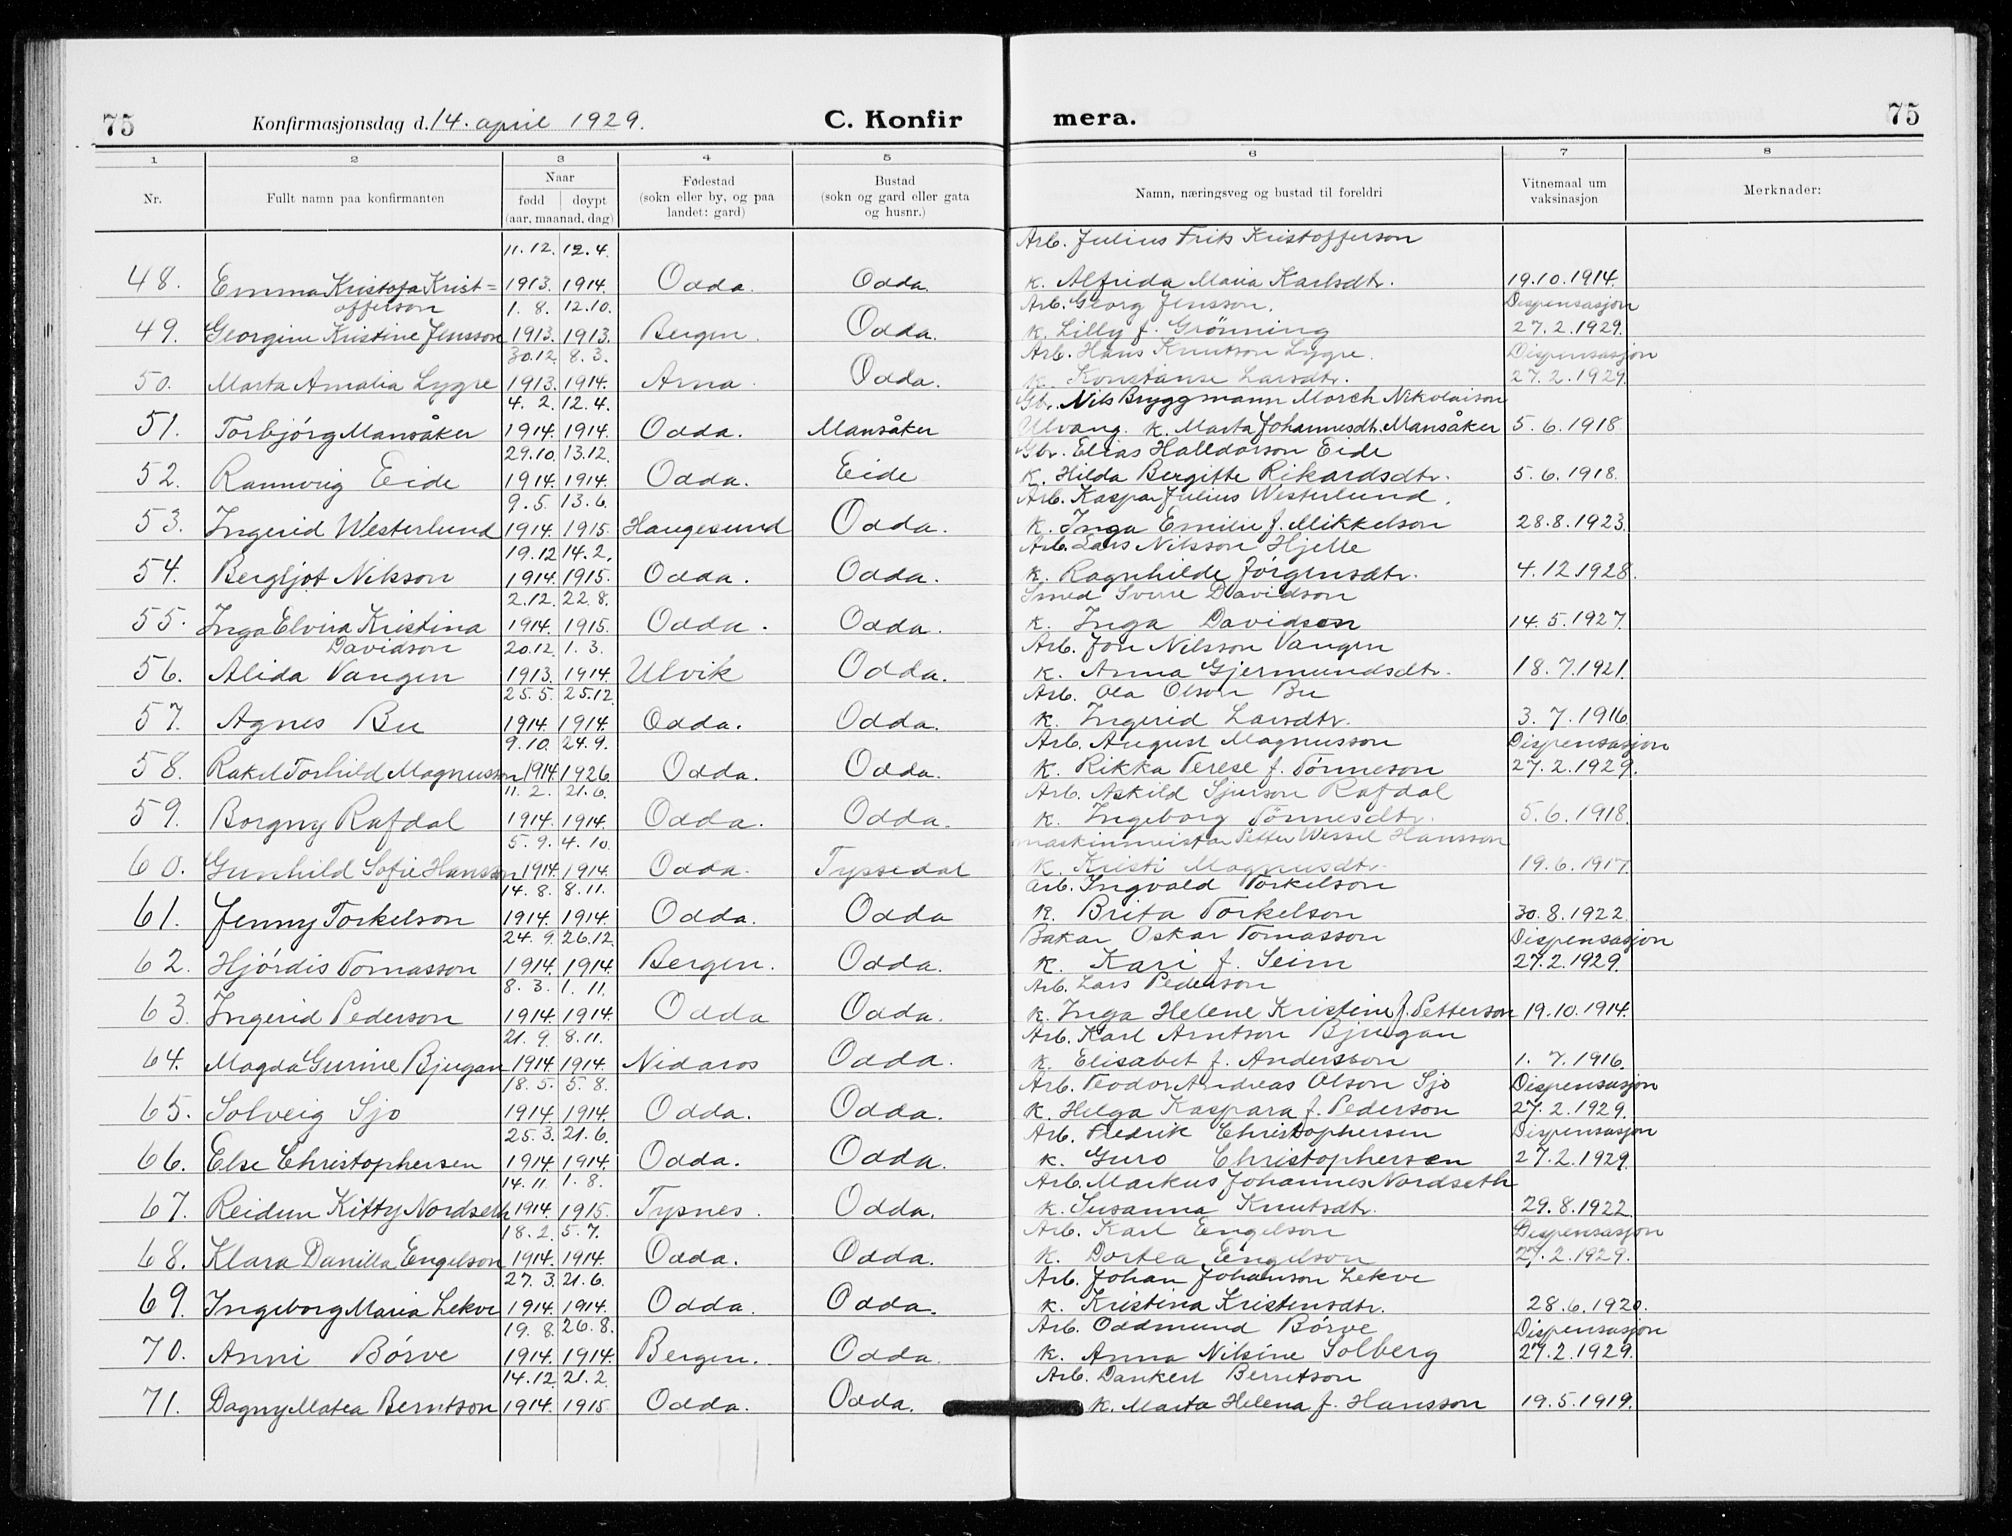 75 Konfirmasjonsdag d. 14. april 1929. C. Konfir mera. 75
1 2 3 4 5 6 7 8
Nr. Fullt namn paa konfirmanten Naar fødd døypt (aar, maanad, dag) Fødestad (sokn eller by, og paa landet: gard) Bustad (sokn og gard eller gata og husnr.) Namn, næringsveg og bustad til foreldri Vitnemaal um vaksinasjon Merknader:
11.12. 12.4. Arb. Julius Frits Kristofferson
48. Emma Kristofa Krist= 1913. 1914. Odda. Odda. k. Alfrida Maria Karlsdtr. 19.10.1914.
offerson 1.8. 12.10. Arb. Georg Jensson. Dispensasjon
49. Georgine Kristine Jensson 1913. 1913. Bergen. Odda. k. Lilly f. Grönning 27.2.1929.
30.12. 8.3. Arb. Hans Knutson Lygre. Dispensasjon
50. Marta Amalia Lygre 1913. 1914. Arna. Odda. k. Konstanse Larsdtr. 27.2.1929.
4.2. 12.4. Gbr. Nils Bryggmann Morch Nikolaison
51. Torbjörg Mansåker 1914. 1914. Odda. Mansåker Ulvang. k. Marta Johannesdtr. Mansåker 5.6.1918.
29.10. 13.12. Gbr. Elias Halldorson Eide
52. Rannvig Eide 1914. 1914. Odda. Eide k. Hilda Bergitte Rikardsdtr. 5.6.1918.
9.5. 13.6. Arb. Kaspar Julius Westerlund.
53. Ingerid Westerlund 1914. 1915. Haugesund Odda. k. Inga Emilie f. Mikkelson 28.8.1923.
19.12 14.2. Arb. Lars Nilsson Hjelle
54. Bergljot Nilsson 1914. 1915. Odda. Odda. k. Ragnhilde Jörgensdtr. 4.12.1928.
2.12. 22.8. Smed Sverre Davidson
55. Inga Elvira Kristina 1914. 1915. Odda. Odda. k. Inga Davidson 14.5.1927.
Davidson 20.12. 1.3. Arb. Jon Nilsson Vangen
56. Alida Vangen 1913. 1914. Ulvik Odda. k. Anna Gjermundsdtr. 18.7.1921.
25.5. 25.12 Arb. Ola Olson Bu
57. Agnes Bu 1914. 1914. Odda. Odda. k. Ingerid Larsdtr. 3.7.1916.
9.10. 24.9. Arb. August Magnusson Dispensasjon
58. Rakel Torhild Magnusson 1914. 1926. Odda. Odda. k. Rikka Terese f. Tönneson 27.2.1929.
11.2. 21.6. Arb. Askild Sjurson Rafdal
59. Borgny Rafdal 1914. 1914. Odda. Odda. k. Ingeborg Tönnesdtr. 5.6.1918.
5.9. 4.10. maskinmeistar Petter Wessel Hansson
60. Gunhild Sofie Hansson 1914. 1914. Odda. Tyssedal k. Kristi Magnusdtr. 19.6.1917.
14.8. 8.11. arb. Ingvald Torkelson
61. Jenny Torkelson 1914. 1914. Odda. Odda k. Brita Torkelson 30.8.1922.
24.9. 26.12. Bakar Oskar Tomasson Dispensasjon
62. Hjördis Tomasson 1914. 1914. Bergen. Odda. k. Kari f. Seim 27.2.1929.
8.3. 1.11. Arb. Lars Pederson
63. Ingerid Pederson 1914. 1914. Odda Odda. k. Inga Helene Kristine f. Petterson 19.10.1914.
21.9. 8.11. Arb. Karl Arntson Bjugan
64. Magda Gurine Bjugan 1914. 1914. Nidaros Odda. k. Elisabet f. Andersson 1.7.1916.
18.5. 5.8. Arb. Teodor Andreas Olson Sjo Dispensasjon
65. Solveig Sjo 1914. 1914. Odda. Odda. k. Helga Kaspara f. Pederson 27.2.1929.
25.3. 21.6. Arb. Fredrik Christophersen Dispensasjon
66. Else Christophersen 1914. 1914. Odda. Odda. k. Guro Christophersen 27.2.1929.
14.11. 1.8. Arb. Markus Johannes Nordseth
67. Reidun Kitty Nordseth 1914. 1915. Tysnes. Odda. k. Susanna Knutsdtr. 29.8.1922.
18.2. 5.7. Arb. Karl Engelson Dispensasjon
68. Klara Danilla Engelson 1914. 1914. Odda. Odda. k. Dortea Engelson 27.2.1929.
27.3. 21.6. Arb. Johan Johanson Lekve
69. Ingeborg Maria Lekve 1914. 1914. Odda. Odda. k. Kristina Kristensdtr. 28.6.1920.
19.8. 26.8. Arb. Oddmund Börve Dispensasjon
70. Anni Börve 1914. 1914. Bergen. Odda. k. Anna Nilsine Solberg 27.2.1929.
14.12. 21.2. Arb. Dankert Berntson
71. Dagny Matea Berntson 1914. 1915. Odda. Odda. k. Marta Helena f. Hansson 19.5.1919.